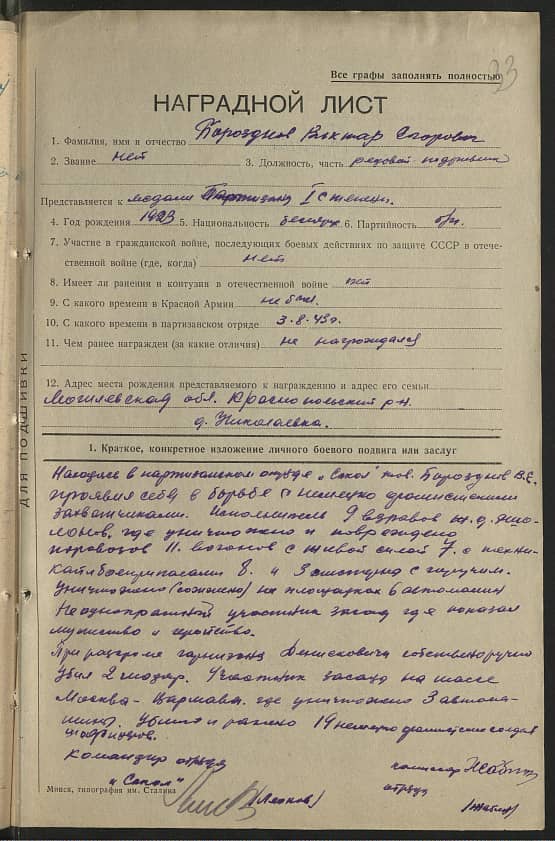 33
Все графы заполнять полностью
НАГРАДНОЙ ЛИСТ
1. Фамилия, имя и отчество Борозднов Виктар Егорович
2. Звание нет 3. Должность, часть рядовой подрывник
Представляется к медали Партизану I степени.
4. Год рождения 1923 5. Национальность белорус 6. Партийность б/п.
7. Участие в гражданской войне, последующих боевых действиях по защите СССР в отече-
ственной войне (где, когда) нет
8. Имеет ли ранения и контузии в отечественной войне нет
9. С какого времени в Красной Армии не был.
10. С какого времени в партизанском отряде 3.8.43г.
11. Чем ранее награжден (за какие отличия) не нагрождался
12. Адрес места рождения представляемого к награждению и адрес его семьи
Могилевская обл. Краснопольский р-н.
д. Николаевка.
ДЛЯ ПОДШИВКИ
1. Краткое, конкретное изложение личного боевого подвига или заслуг
Находясь в партизанском отряде „Сокол" тов. Борозднов В.Е.
проявил себя в борьбе с немецко фашистскими
захватчиками. 9 взравов ж.д. эше-
лонов, где уничтожено и повреждено
поровозов 11. вогонов с живой силой 7. с техни-
кай боеприпасами 8. и 3 цистерна с горючим.
Уничтожено (сожжено) на площадках 6 автомашин
Неоднократный участник засад где показал
мужество и геройство.
При разгроме гарнизона Денисковичи собственоручно
убил 2 Участник засад на шассе
Москва - Варшава. где уничтожено 3 автома-
шины. Убито и ранено 19 немецко фашистских солдат
и офицеров.
Командир отряда
„Сокол"
комиссар
отряда
Минск, типография им. Сталина